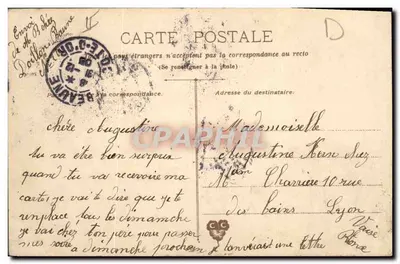 Envoi
de
Doillon Beaune
CARTE POSTALE
pays étrangers n'acceptent pas la correspondance au recto
(Se renseigner à la poste)
BEAUNE
CÔTE-D'OR
correspondance
Adresse du destinataire.
chère Augustine
tu va être bien surpris
quand tu va recevoire ma
carte je vait te dire que je te
remplace tous les dimanche
je vai chez ton père pour passer
mes soirée
a dimanche prochain je t'enverait une lettre
Mademoiselle
Augustine chez
Mme Charrière 10 rue
des bains Lyon
Vaise
Rhône
CPAPHIL